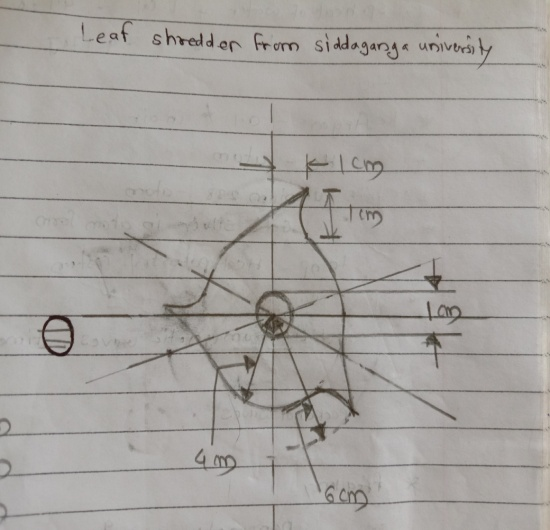 Leaf shredder from siddaganga university
1cm
1cm
1cm
4m
6cm